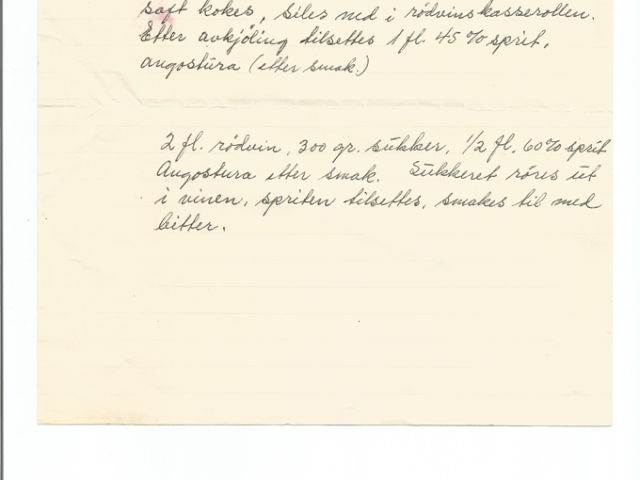 saft kokes, siles ned i rödvinskasserollen.
Etter avkjöling tilsettes 1 fl. 45% sprit,
angostura (etter smak.)
2 fl. rödvin, 300 gr. sukker, 1/2 fl. 60% sprit
Angostura etter smak. Sukkeret röres ut
i vinen, spriten tilsettes, smakes til med
bitter.